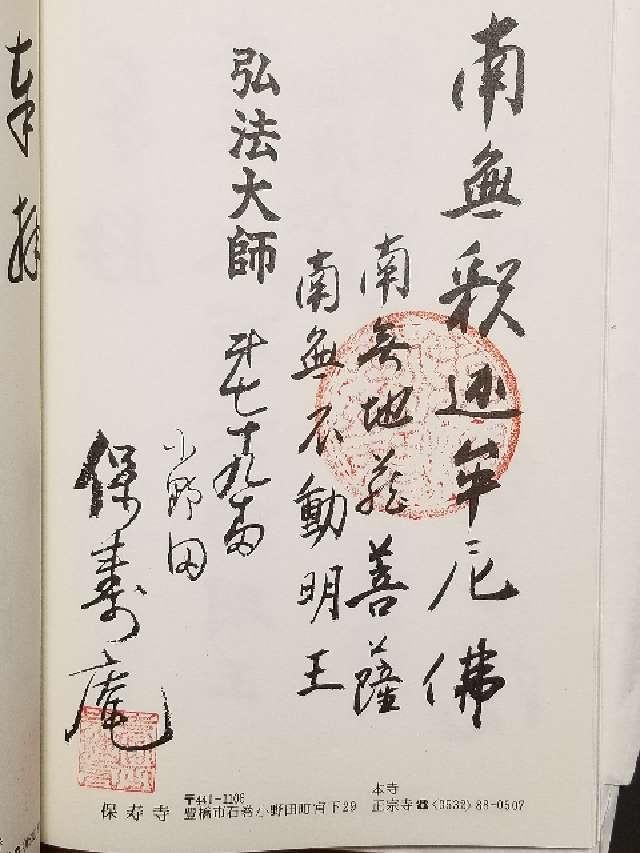 南無釈迦牟尼佛
南無地蔵菩薩
南無不動明王
弘法大師 第七十九番
小野田
保寿庵
奉拝
保寿寺
〒441-1106
豊橋市石巻小野田町宮下29
本寺
正宗寺☎(0532)88-0507